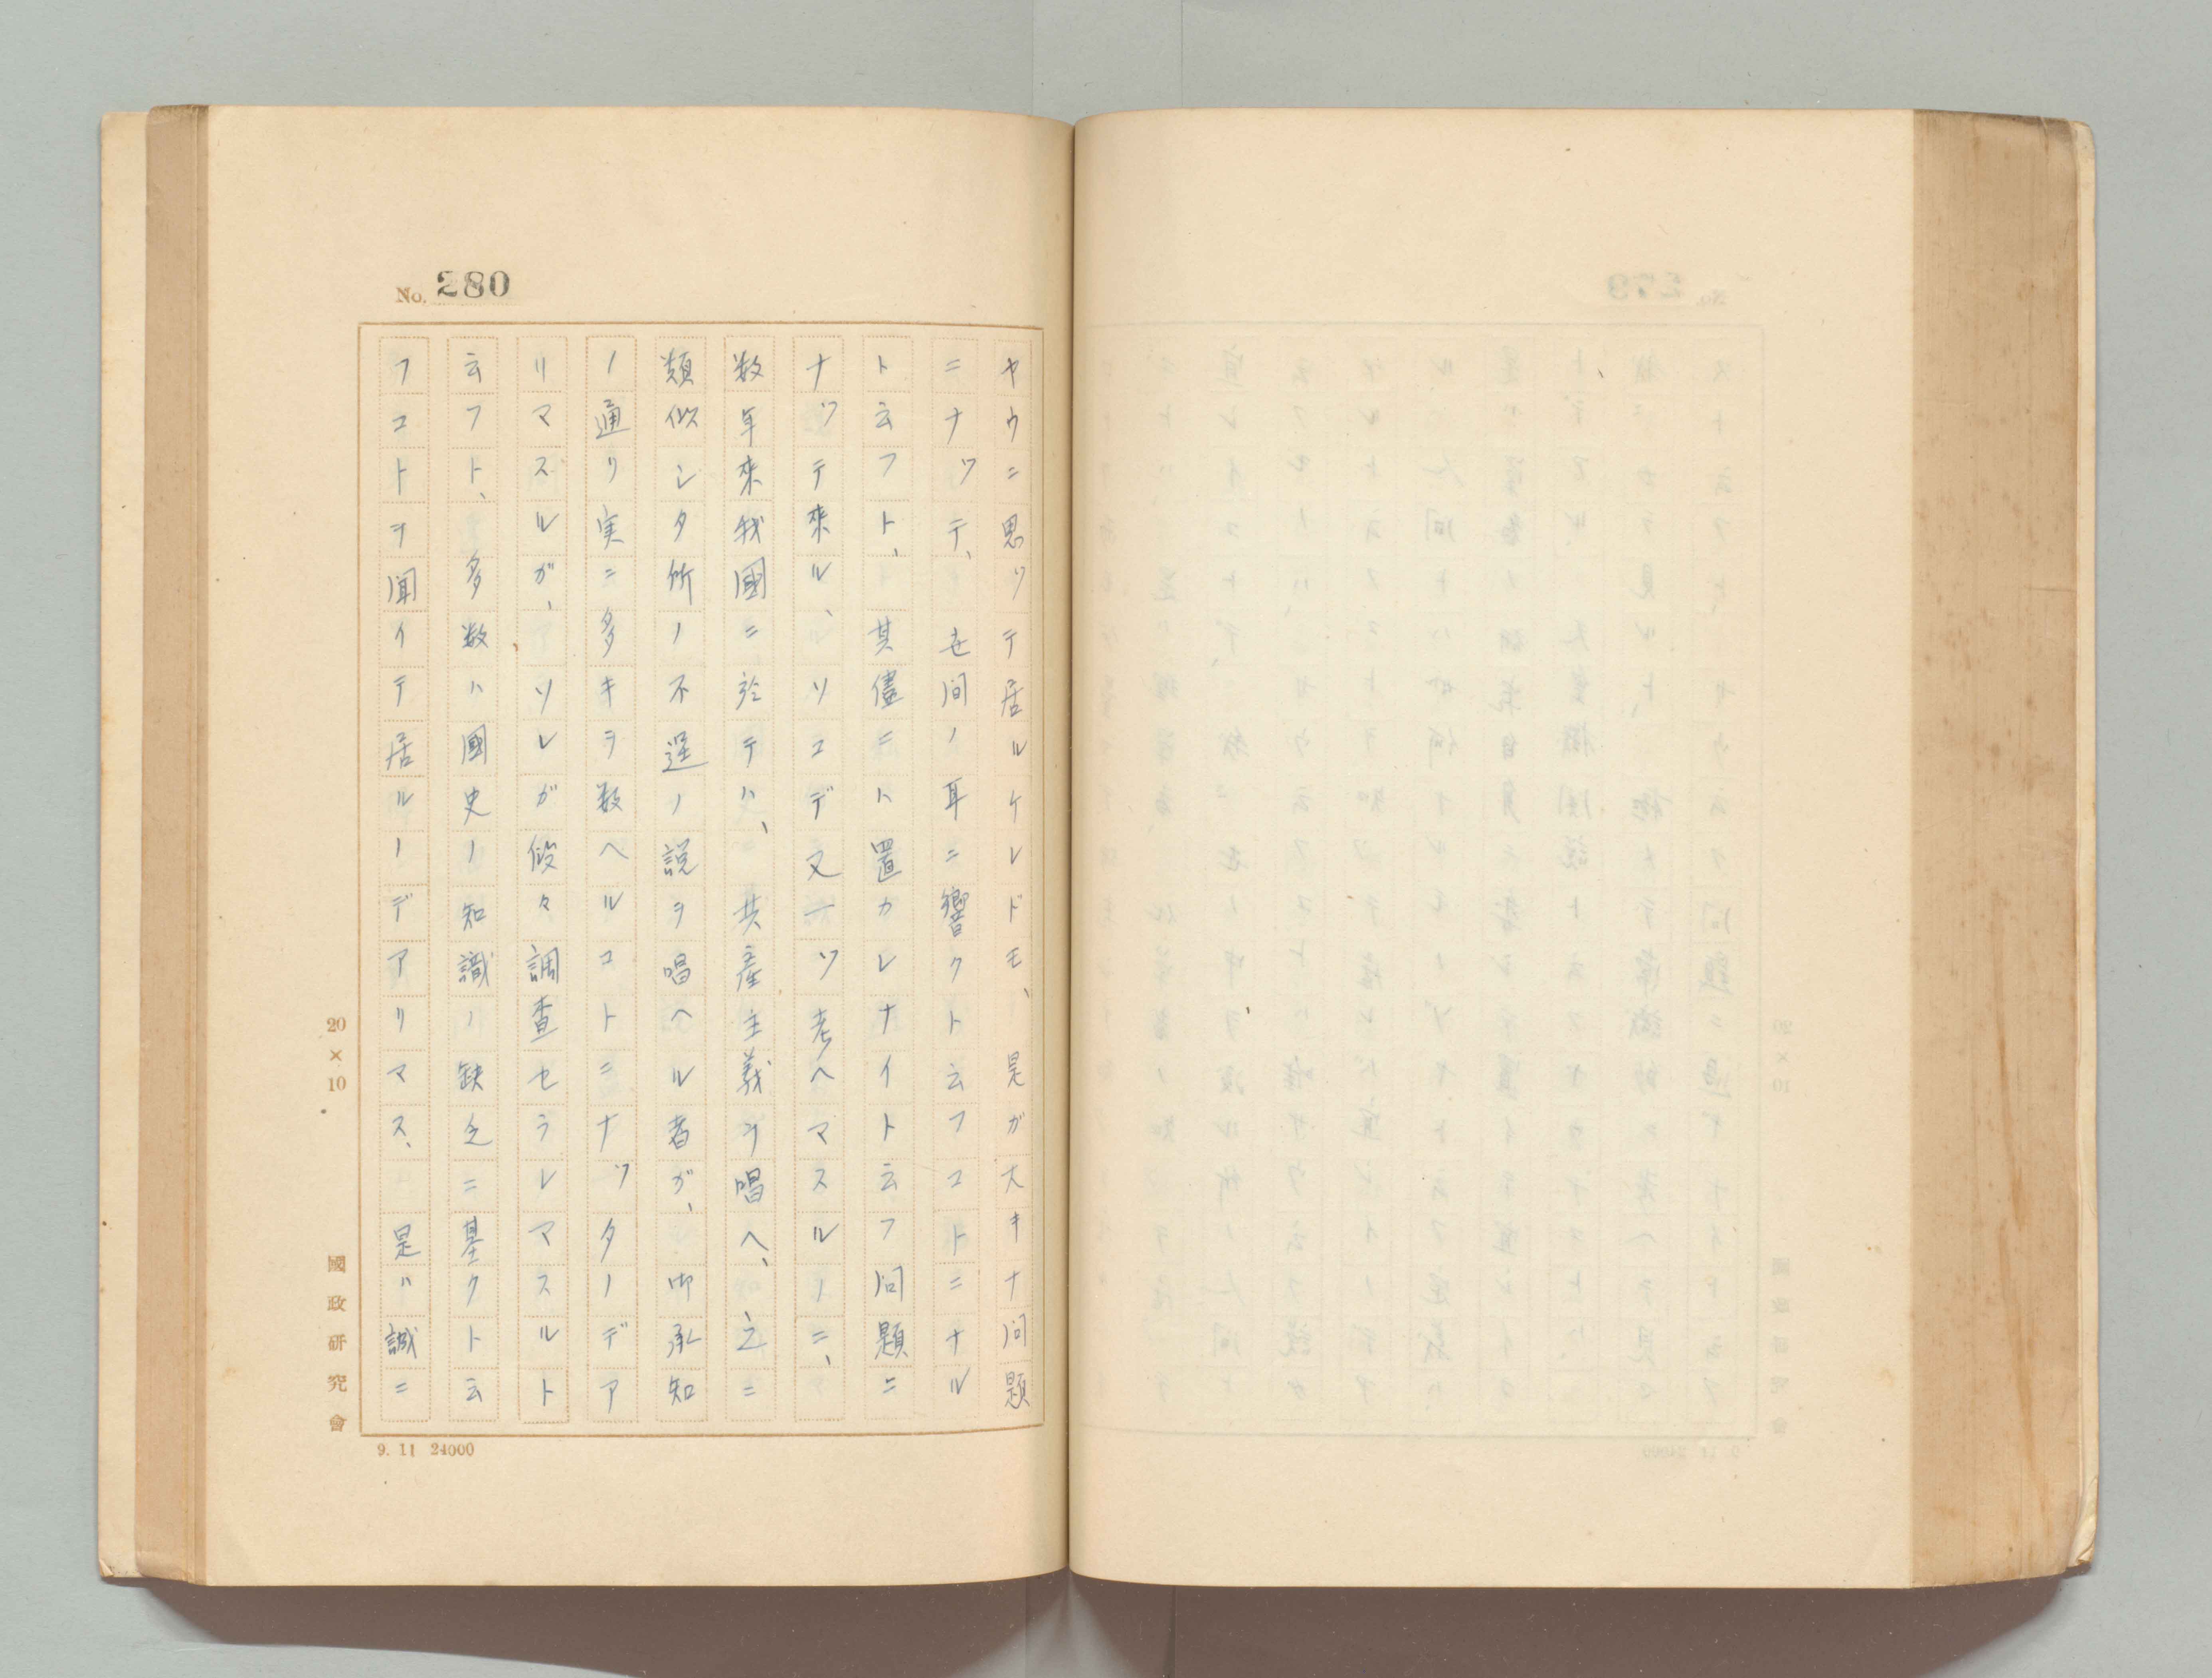 No. 280
ヤウニ思ツテ居ルケレドモ、是ガ大キナ問題
ニナツテ、世間ノ耳ニ響クト云フコトニナル
ト云フト、其儘ニハ置カレナイト云フ問題ニ
ナツテ來ル、ソコデ又一ツ考ヘマスルノニ、
数年來我國ニ於テハ、共産主義ヲ唱ヘ、之ニ
類似シタ所ノ不逞ノ説ヲ唱ヘル者ガ、御承知
ノ通リ実ニ多キヲ数ヘルコトニナツタノデア
リマスルガ、ソレガ段々調査セラレマスルト
云フト、多数ハ國史ノ知識ノ缺乏ニ基クト云
フコトヲ聞イテ居ルノデアリマス、是ハ誠ニ
20×10
國政研究會
9. 11 24000